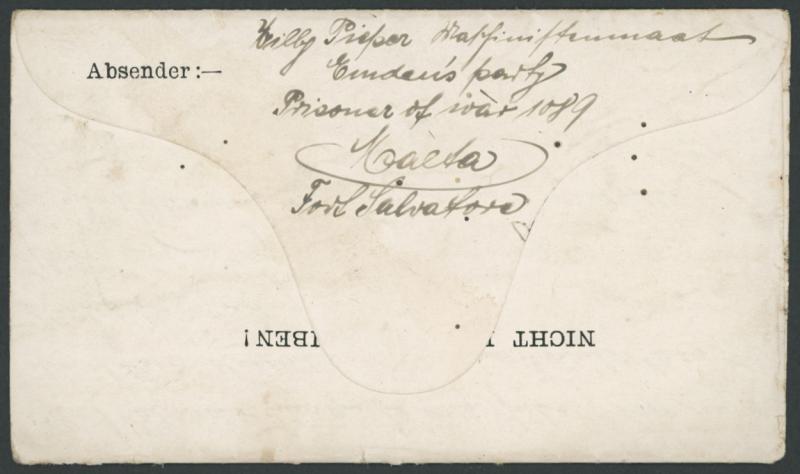 Willy Pieper Maschinistenmaat
Absender:—
Emden's party
Prisoner of war 1089
Malta
Fort Salvatore
NICHT IBEN!